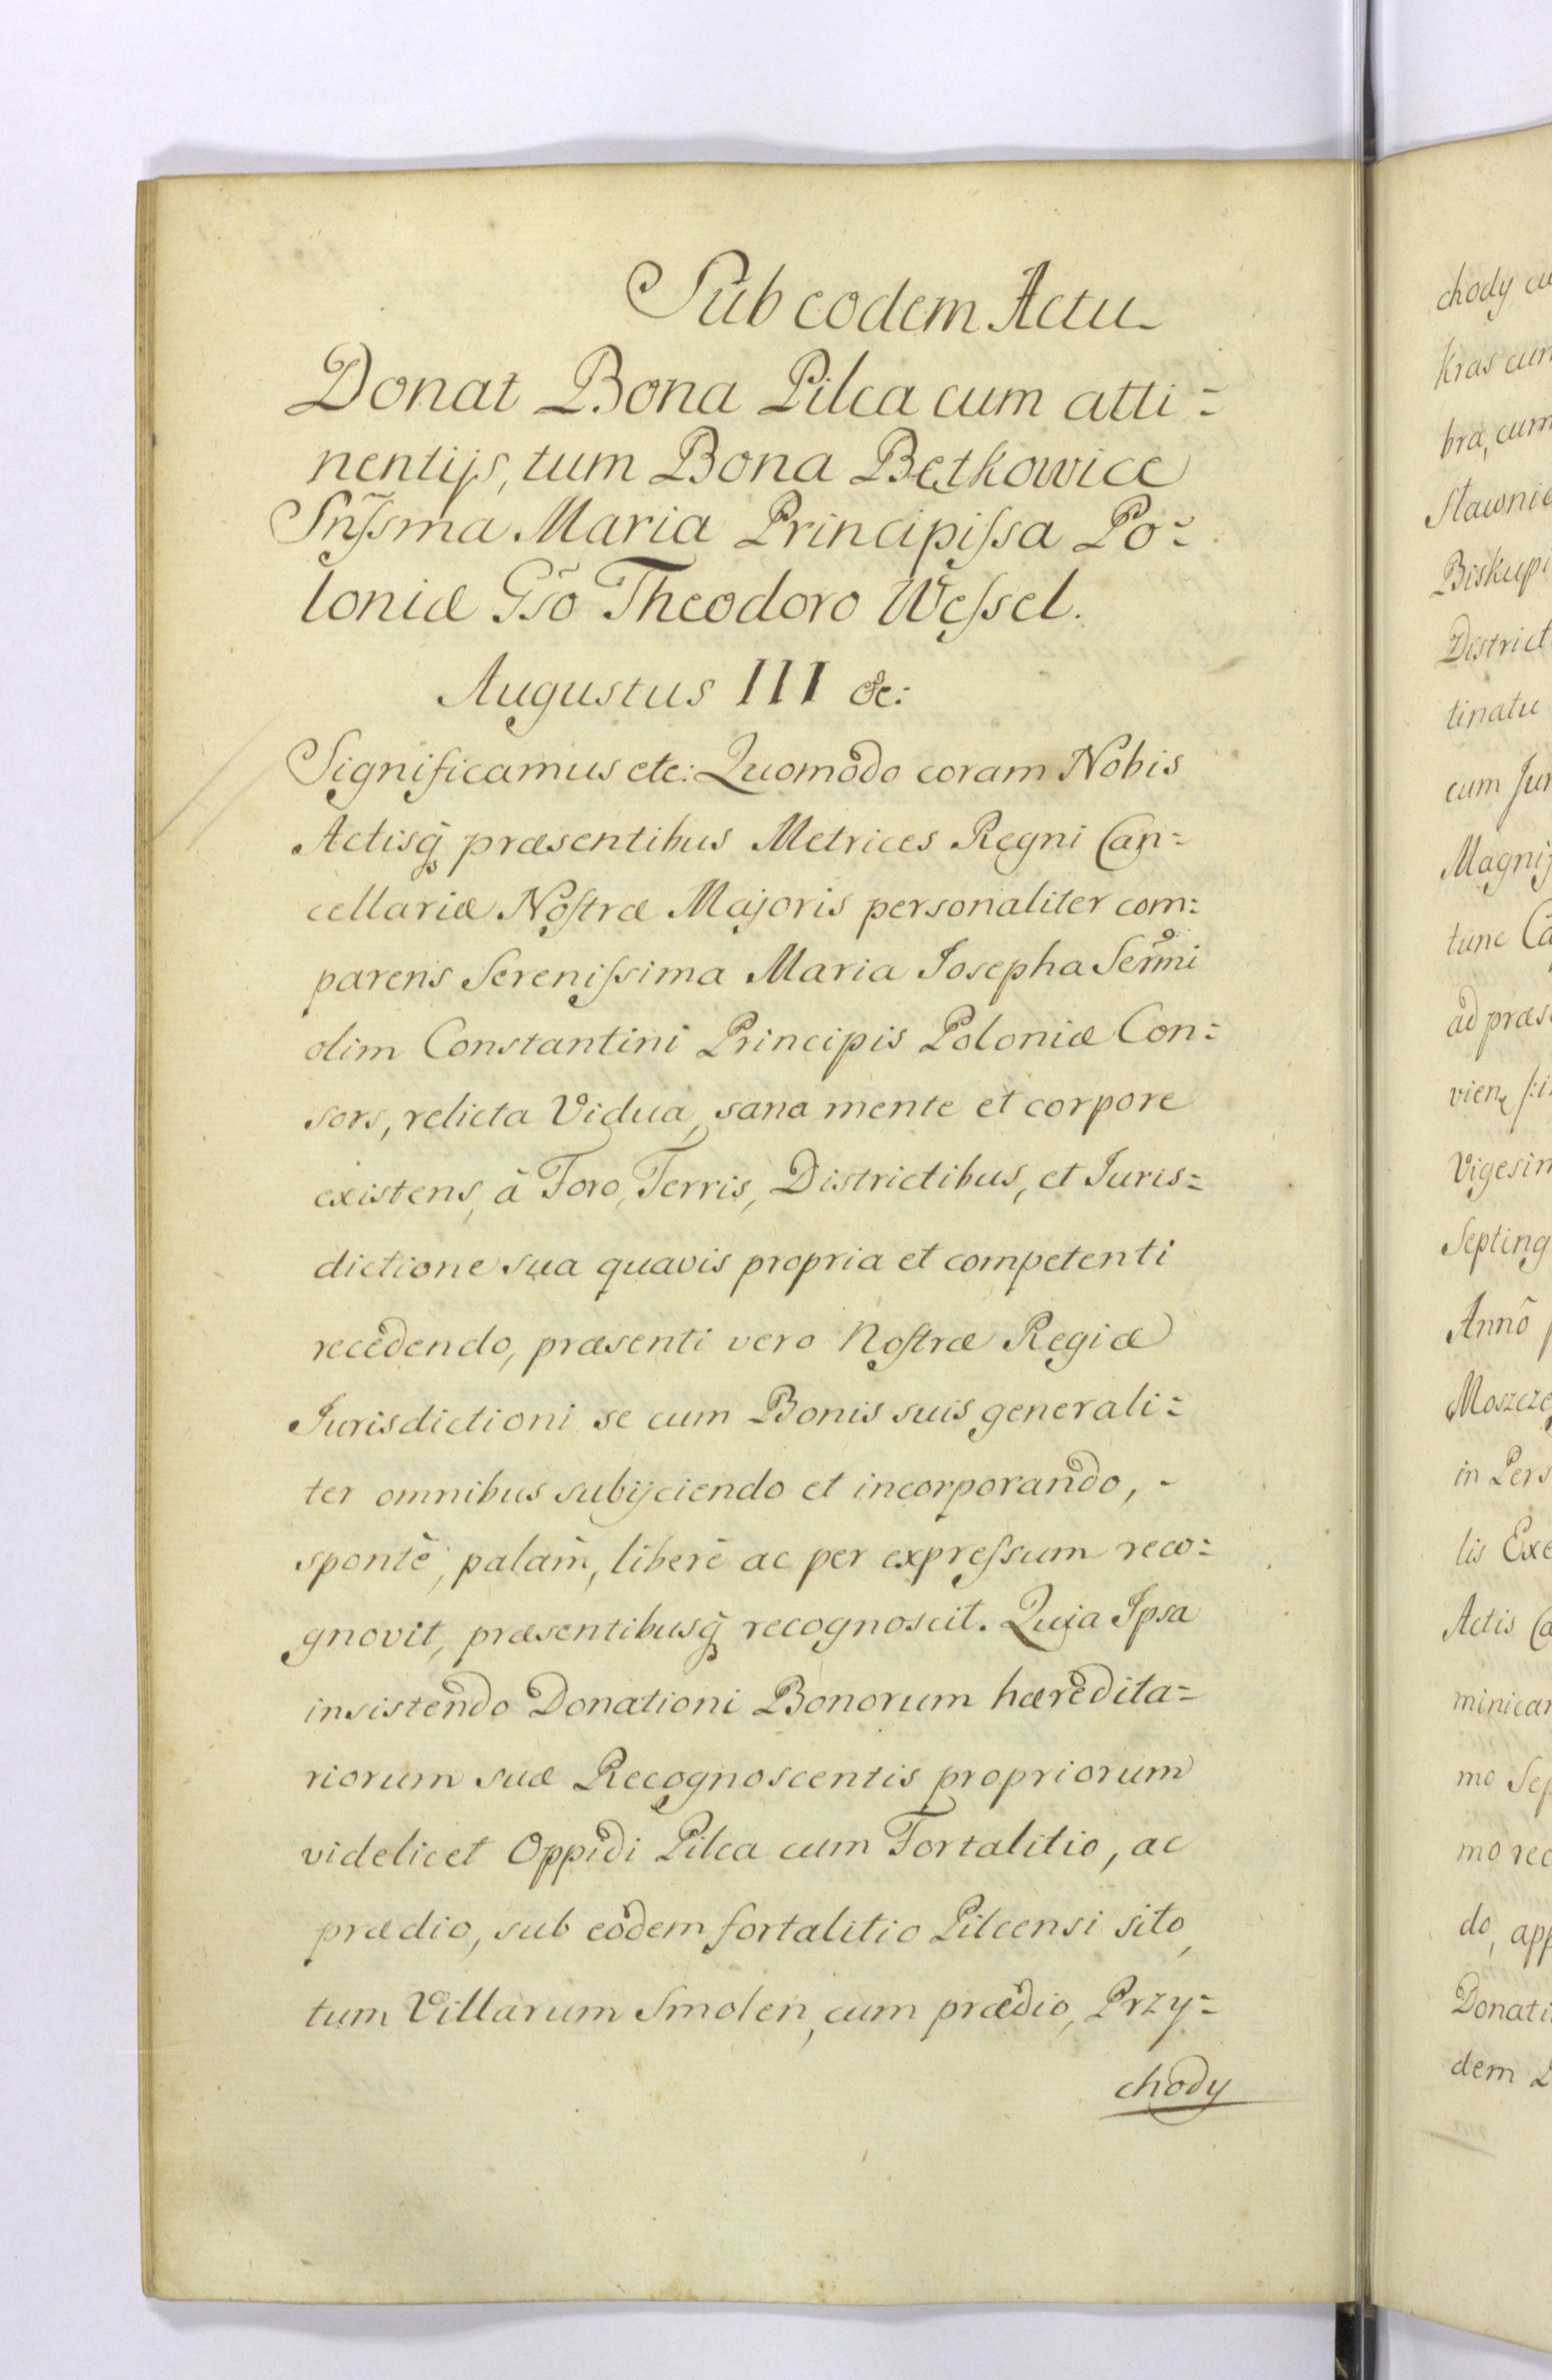 Sub eodem Actu
Donat Bona Pilca cum atti=
nentijs, tum Bona Bętkowice
Sñissma Maria Principissa Po=
loniæ Gso Theodoro Wessel.
Augustus III &c:
Significamus etc: Quomodo coram Nobis
Actisq̃ præsentibus Metrices Regni Can=
cellariæ Nostræ Majoris personaliter com=
parens Serenissima Maria Josepha Sermi
olim Constantini Principis Poloniæ Con=
sors, relicta Vidua, sana mente et corpore
existens, à Foro, Terris, Districtibus, et Juris=
dictione sua quavis propria et competenti
recedendo, præsenti vero Nostræ Regiæ
Jurisdictioni se cum Bonis suis generali=
ter omnibus subijciendo et incorporando, -
spontè, palam, liberè ac per expressum reco=
gnovit, præsentibusq̃ recognoscit. Quia Ipsa
insistendo Donationi Bonorum hæredita=
riorum suæ Recognoscentis propriorum
videlicet Oppidi Pilca cum Fortalitio, ac
prædio, sub eodem fortalitio Pilcensi sito,
tum Villarum Smolen, cum prædio, Przy=
chody
chody
kras cum
bra, cum
Sławnio
Biskupi
District
tinatu
cum Jur
Magnif
tunc Ca
ad præs
vien
Vigesim
Septing
Annô
Moszcze
in Pers
lis Exe
Actis Ca
minican
mo Sep
mo rec
do, app
Donati
dem